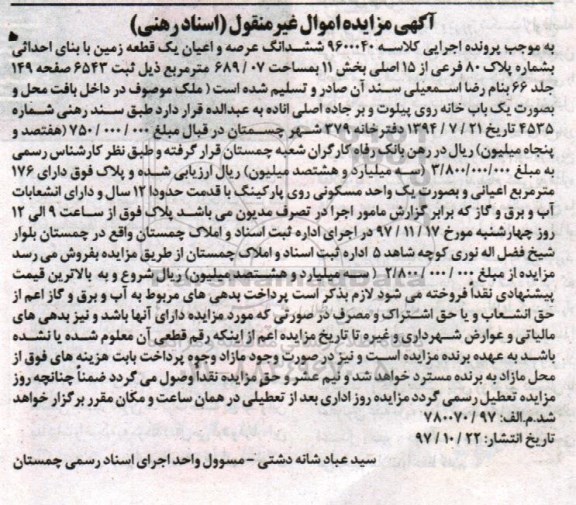 آگهی مزایده اموال غیرمنقول (اسناد رهنی)
به موجب پرونده اجرایی کلاسه ۹۶۰۰۰۴۰ ششدانگ عرصه و اعیان یک قطعه زمین با بنای احداثی
بشماره پلاک ۸۰ فرعی از ۱۵ اصلی بخش ۱۱ بمساحت ۰۷ / ۶۸۹ مترمربع ذیل ثبت ۶۵۴۳ صفحه ۱۴۹
جلد ۶۶ بنام رضا اسمعیلی سند آن صادر و تسلیم شده است ( ملک موصوف در داخل بافت محل و
بصورت یک باب خانه روی پیلوت و بر جاده اصلی اناده به عبدالده قرار دارد طبق سند رهنی شماره
۴۵۳۰ تاریخ ۲۱ / ۷ / ۱۳۹۴ دفترخانه ۳۷ شهر چمستان در قبال مبلغ ۰۰۰ / ۰۰۰ / ۷۵۰ (هفتصد و
پنجاه میلیون) ریال در رهن بانک رفاه کارگران شعبه چمستان قرار گرفته و طبق نظر کارشناس رسمی
به مبلغ ۳/۸۰۰/۰۰۰/۰۰۰ (سه میلیارد و هشتصد میلیون) ریال ارزیابی شده و پلاک فوق دارای ۱۷۶
متر مربع اعیانی و بصورت یک واحد مسکونی روی پارکینگ با قدمت حدودا ۱۲ سال و دارای انشعابات
آب و برق و گاز که برابر گزارش مامور اجرا در تصرف مدیون می باشد پلاک فوق از ساعت ۹ الی ۱۲
روز چهارشنبه مورخ ۱۷ / ۱۱ / ۹۷ در اجرای اداره ثبت اسناد و املاک چمستان واقع در چمستان بلوار
شیخ فضل اله نوری کوچه شاهد ۵ اداره ثبت اسناد و املاک چمستان از طریق مزایده بفروش می رسد
مزایده از مبلغ ۰۰۰ / ۰۰۰ / ۳/۸۰۰ ( سه میلیارد و هشتصد میلیون) ریال شروع و به بالاترین قیمت
پیشنهادی نقداً فروخته می شود لازم بذکر است پرداخت بدهی های مربوط به آب و برق و گاز اعم از
حق انشعاب و یا حق اشتراک و مصرف در صورتی که مورد مزایده دارای آنها باشد و نیز بدهی های
مالیاتی و عوارض شهرداری و غیره تا تاریخ مزایده اعم از اینکه رقم قطعی آن معلوم شده یا نشده
باشد به عهده برنده مزایده است و نیز در صورت وجود مازاد وجوه پرداخت بابت هزینه های فوق از
محل مازاد به برنده مسترد خواهد شد و نیم عشر و حق مزایده نقدا وصول می گردد ضمناً چنانچه روز
مزایده تعطیل رسمی گردد مزایده روز اداری بعد از تعطیلی در همان ساعت و مکان مقرر برگزار خواهد
شد.م.الف: ۹۷ / ۷۸۰۰۷۰
تاریخ انتشار: ۲۲ / ۱۰ / ۹۷
سید عباد شانه دشتی - مسوول واحد اجرای اسناد رسمی چمستان